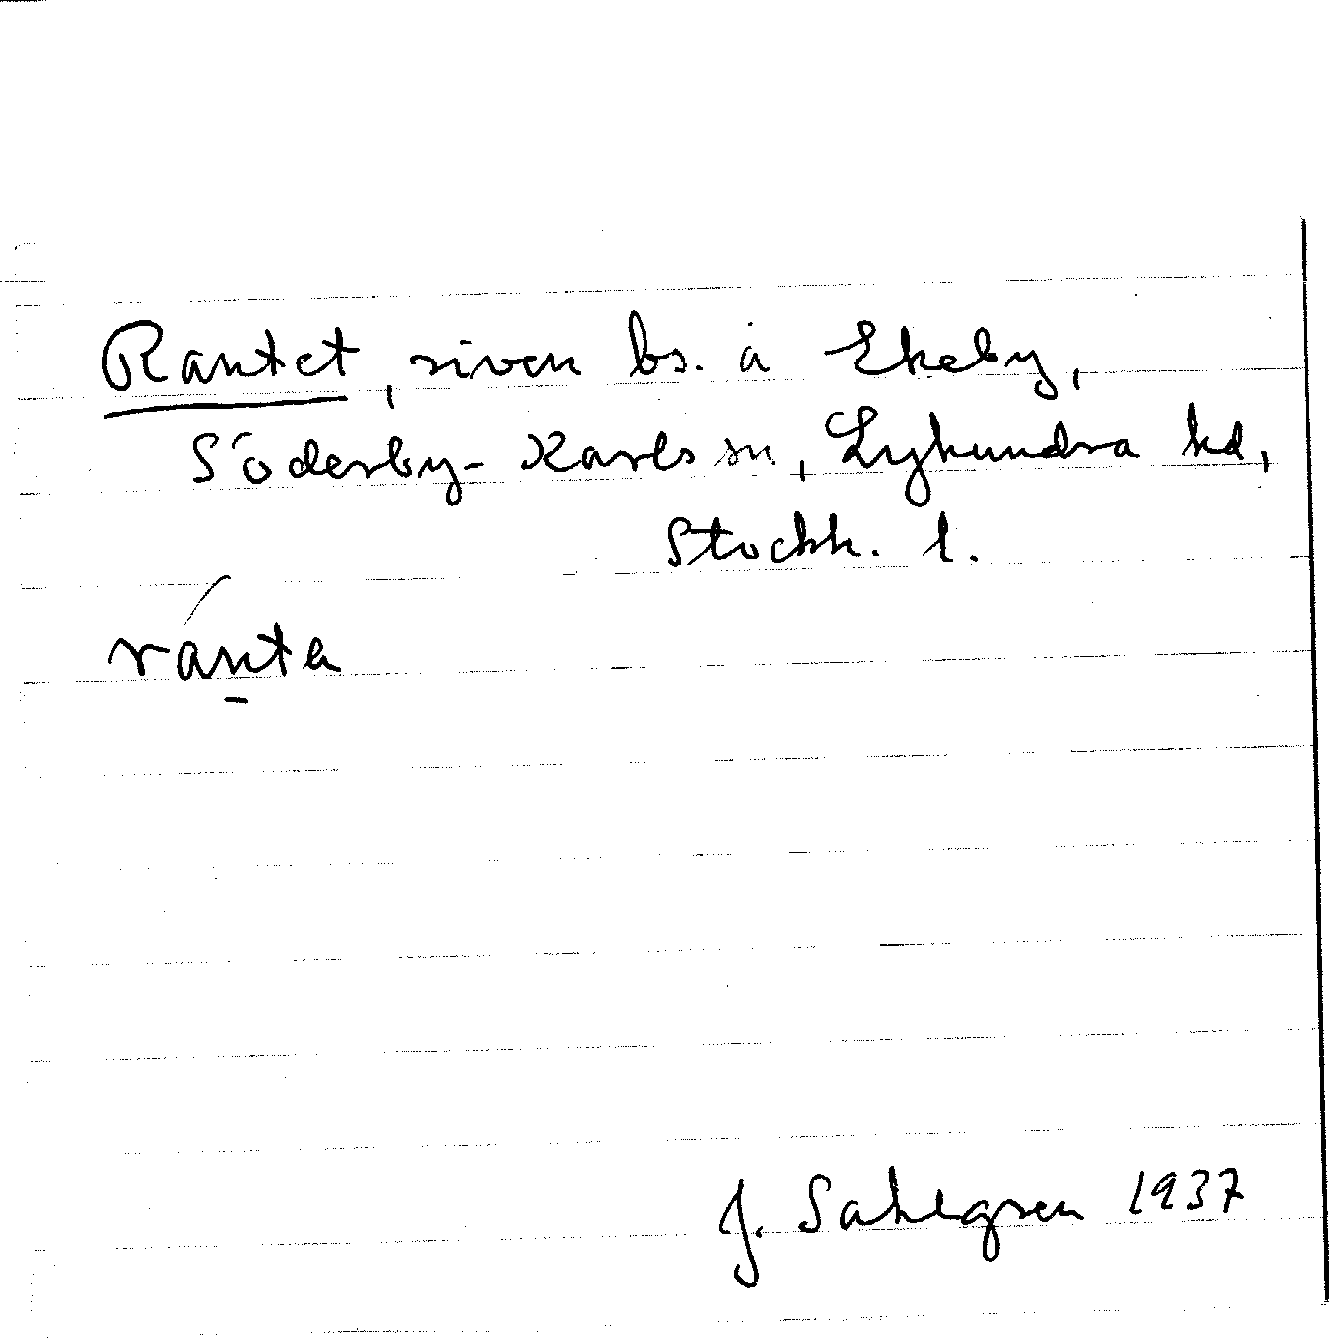 Rantet, riven bs. å Ekeby,
Söderby-Karls sn, Lyhundra hd,
Stockh. l.
ránta
J. Sahlgren 1937